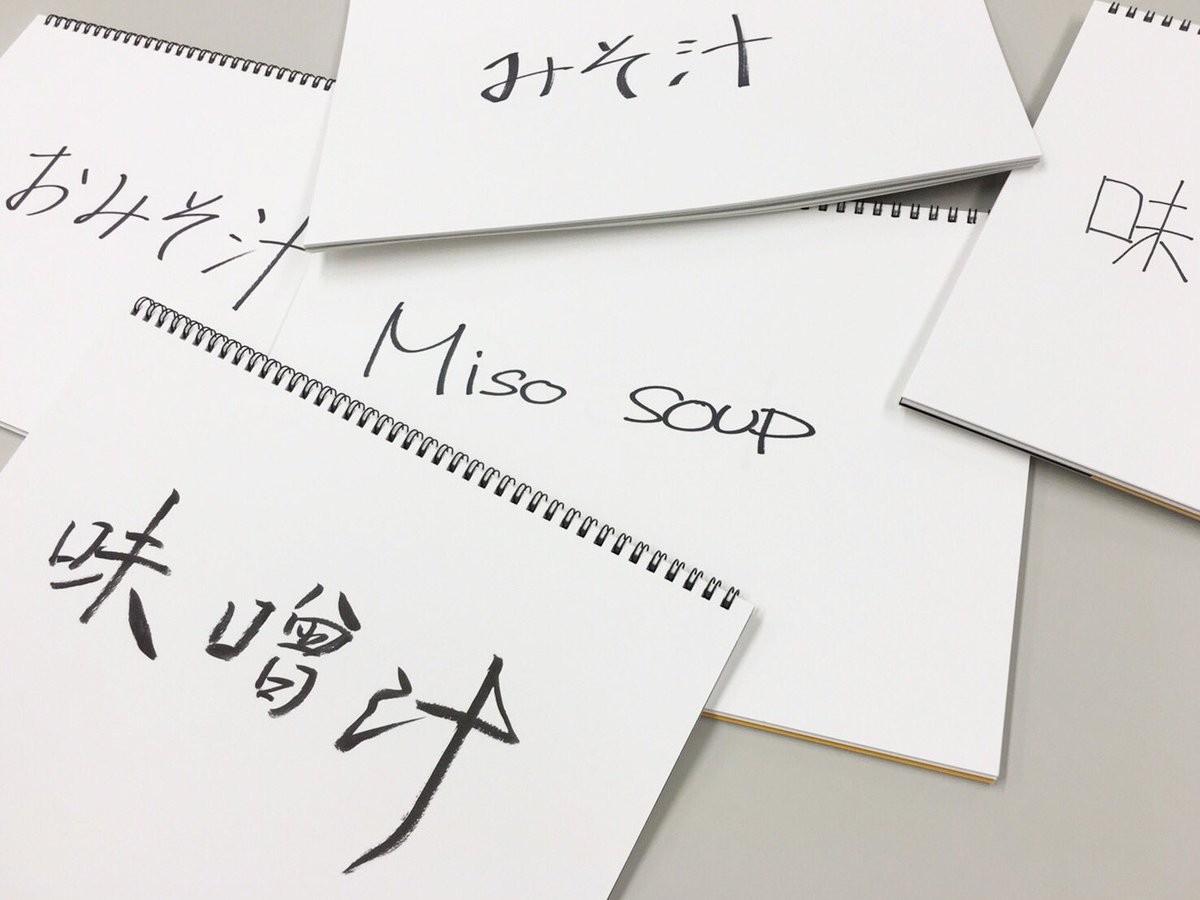 みそ汁
おみそ汁
味
Miso soup
味噌汁